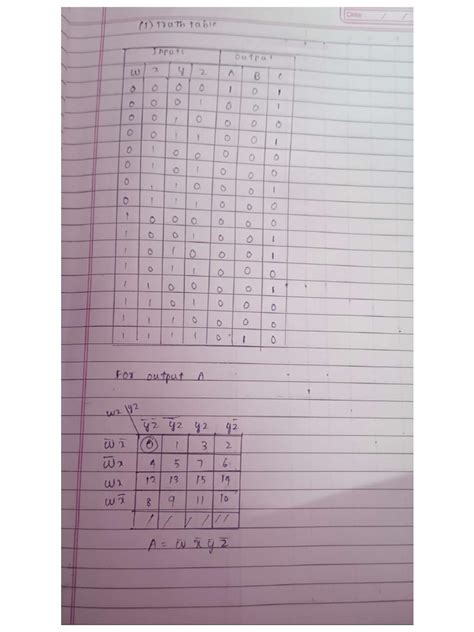 Date / /
(1) Truth table
Inputs Output
w x y z A B C
0 0 0 0 1 0 1
0 0 0 1 0 0 1
0 0 1 0 0 0 0
0 0 1 1 0 0 1
0 1 0 0 0 0 0
0 1 0 1 0 0 0
0 1 1 0 0 0 1
0 1 1 1 0 0 0
1 0 0 0 0 0 0
1 0 0 1 0 0 1
1 0 1 0 0 0 1
1 0 1 1 0 0 0
1 1 0 0 0 0 1
1 1 0 1 0 0 0
1 1 1 0 0 0 0
1 1 1 1 0 1 0
For output A
wx \ yz
y̅z̅ y̅z yz yz̅
w̅ x̅ 0 1 3 2
w̅ x 4 5 7 6
wx 12 13 15 14
w x̅ 8 9 11 10
A = w̅ x̅ y̅ z̅